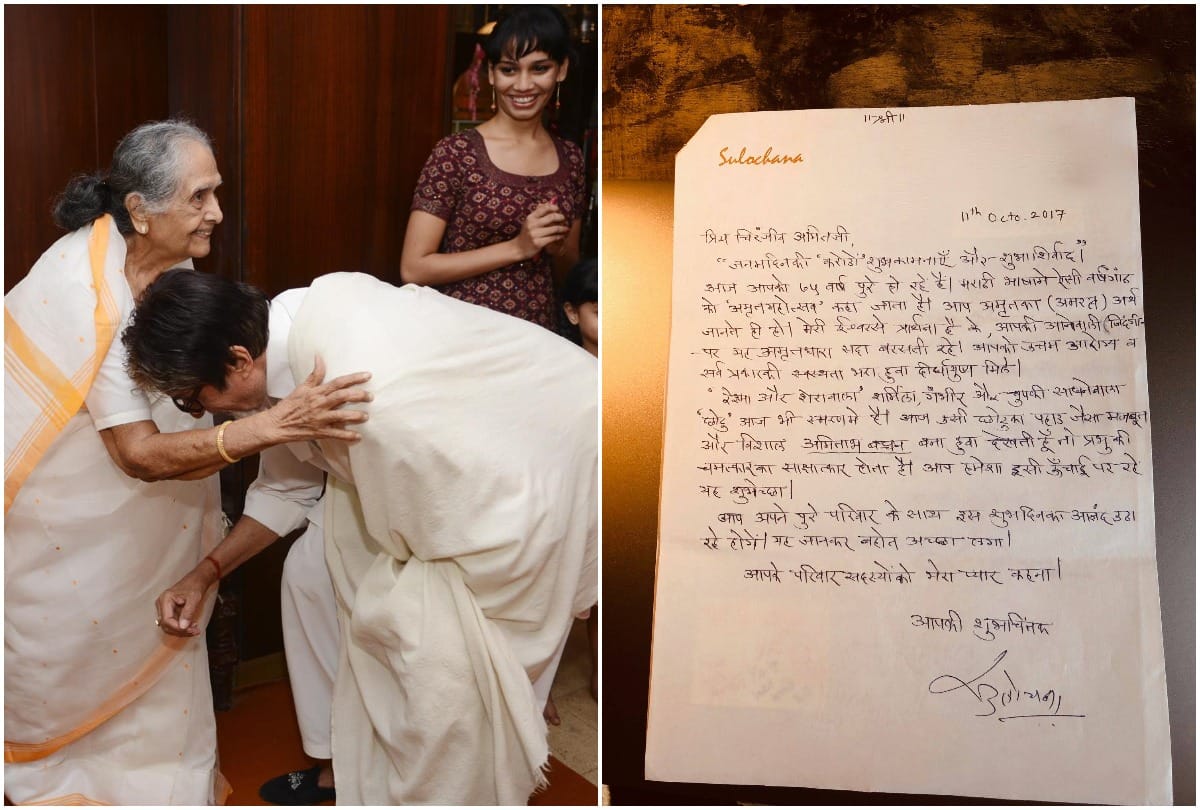 ॥श्री॥
Sulochana
11th Octo. 2017
प्रिय चिरंजीव अमितजी,
"जनमदिनकी 'करोडो' शुभकामनाएँ और शुभाशिर्वाद।"
आज आपको ७५ वर्ष पुरे हो रहे हैं। मराठी भाषामे ऐसी वर्षगांठ
को 'अमृतमहोत्सव' कहा जाता है। आप अमृतका (अमरत) अर्थ
जानते ही हो। मेरी ईश्वरसे प्रार्थना है के, आपकी आनेवाली जिंदगी-
-पर यह अमृतधारा सदा बरसती रहे। आपको उत्तम आरोग्य व
सर्व प्रकारकी स्वस्थता भरा हुवा दीर्घायुष्य मिले।
'रेश्मा और शेरावाला' शर्मिला, गंभीर और चुपकी साधनेवाला
'छोटु' आज भी स्मरणमे है। आज उसी छोटुका पहाड जैसा मजबूत
और विशाल अमिताभ बच्चन बना हुवा देखती हूँ तो प्रभु की
चमत्कारका साक्षात्कार होता है। आप हमेशा इसी ऊँचाई पर रहे
यह शुभेच्छा।
आप अपने पुरे परिवार के साथ इस शुभदिनका आनंद उठा
रहे होगे। यह जानकर बहोत अच्छा लगा।
आपके परिवार सदस्योंको मेरा प्यार कहना।
आपकी शुभचिंतक
सुलोचना